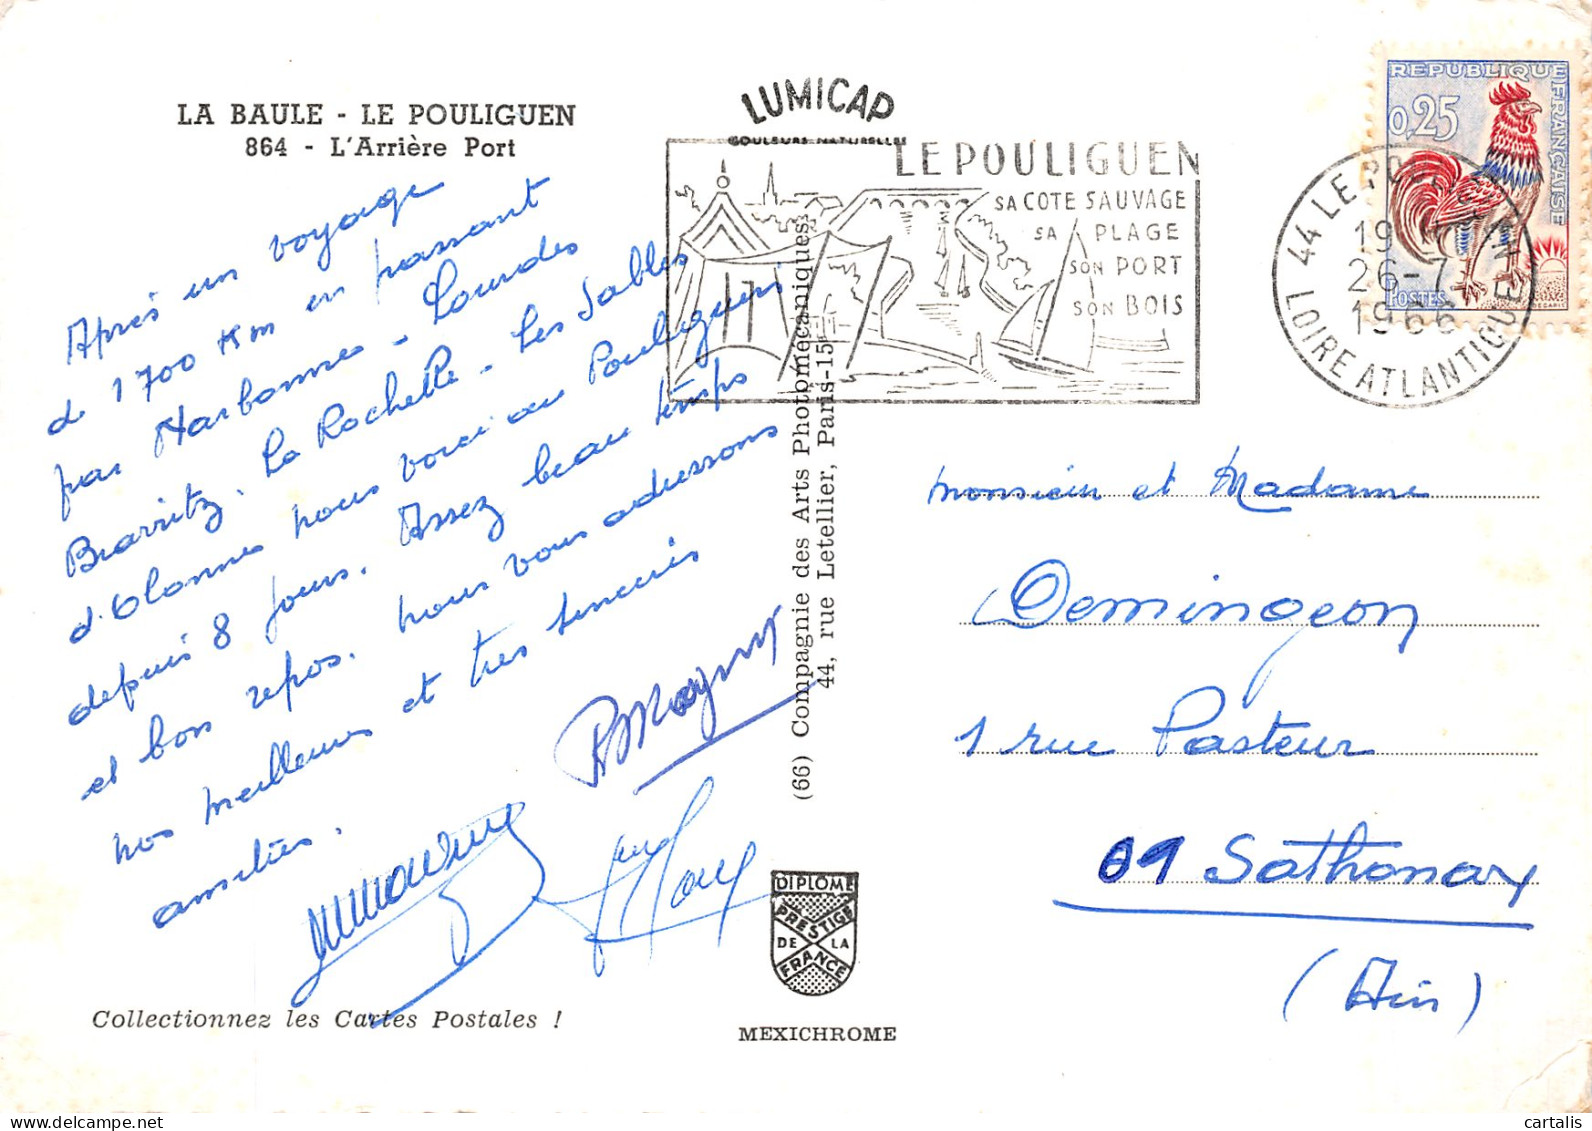 LA BAULE - LE POULIGUEN
864 - L'Arrière Port
Après un voyage
de 1700 Km en passant
par Narbonne - Lourdes
Biarritz. La Rochelle - Les Sables
d'Olonnes nous voici au Pouliguen
depuis 8 jours. Assez beau temps
et bon repos. nous vous adressons
nos meilleures et très sincères
amitiés.
Collectionnez les Cartes Postales !
LUMICAP
COULEURS NATURELLES
(66) Compagnie des Arts Photomécaniques
44, rue Letellier, Paris-15
DIPLOME
PRESTIGE
DE LA
FRANCE
MEXICHROME
LE POULIGUEN
SA COTE SAUVAGE
SA PLAGE
SON PORT
SON BOIS
44 LE POULIGUEN
26-7
1966
LOIRE ATLANTIQUE
REPUBLIQUE FRANÇAISE
0,25
POSTES
Monsieur et Madame
Demingeon
1 rue Pasteur
01 Sathonay
(Ain)
cartalis